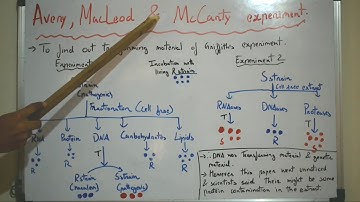 Avery, MacLeod & McCarty experiment.
→ To find out transforming material of Griffith's experiment.
Experiment
Incubation with living R strain
Experiment 2
S strain
(pathogenic)
Fractionation (cell free)
S strain
(cell free extract)
RNA Protein DNA Carbohydrates Lipids
RNAases DNAases Proteases
T
R R R R
S R S
R strain S strain
(pathogenic)
→ DNA was transforming material & genetic material.
→ However this paper went unnoticed & scientists said there might be some protein contamination in the extract.